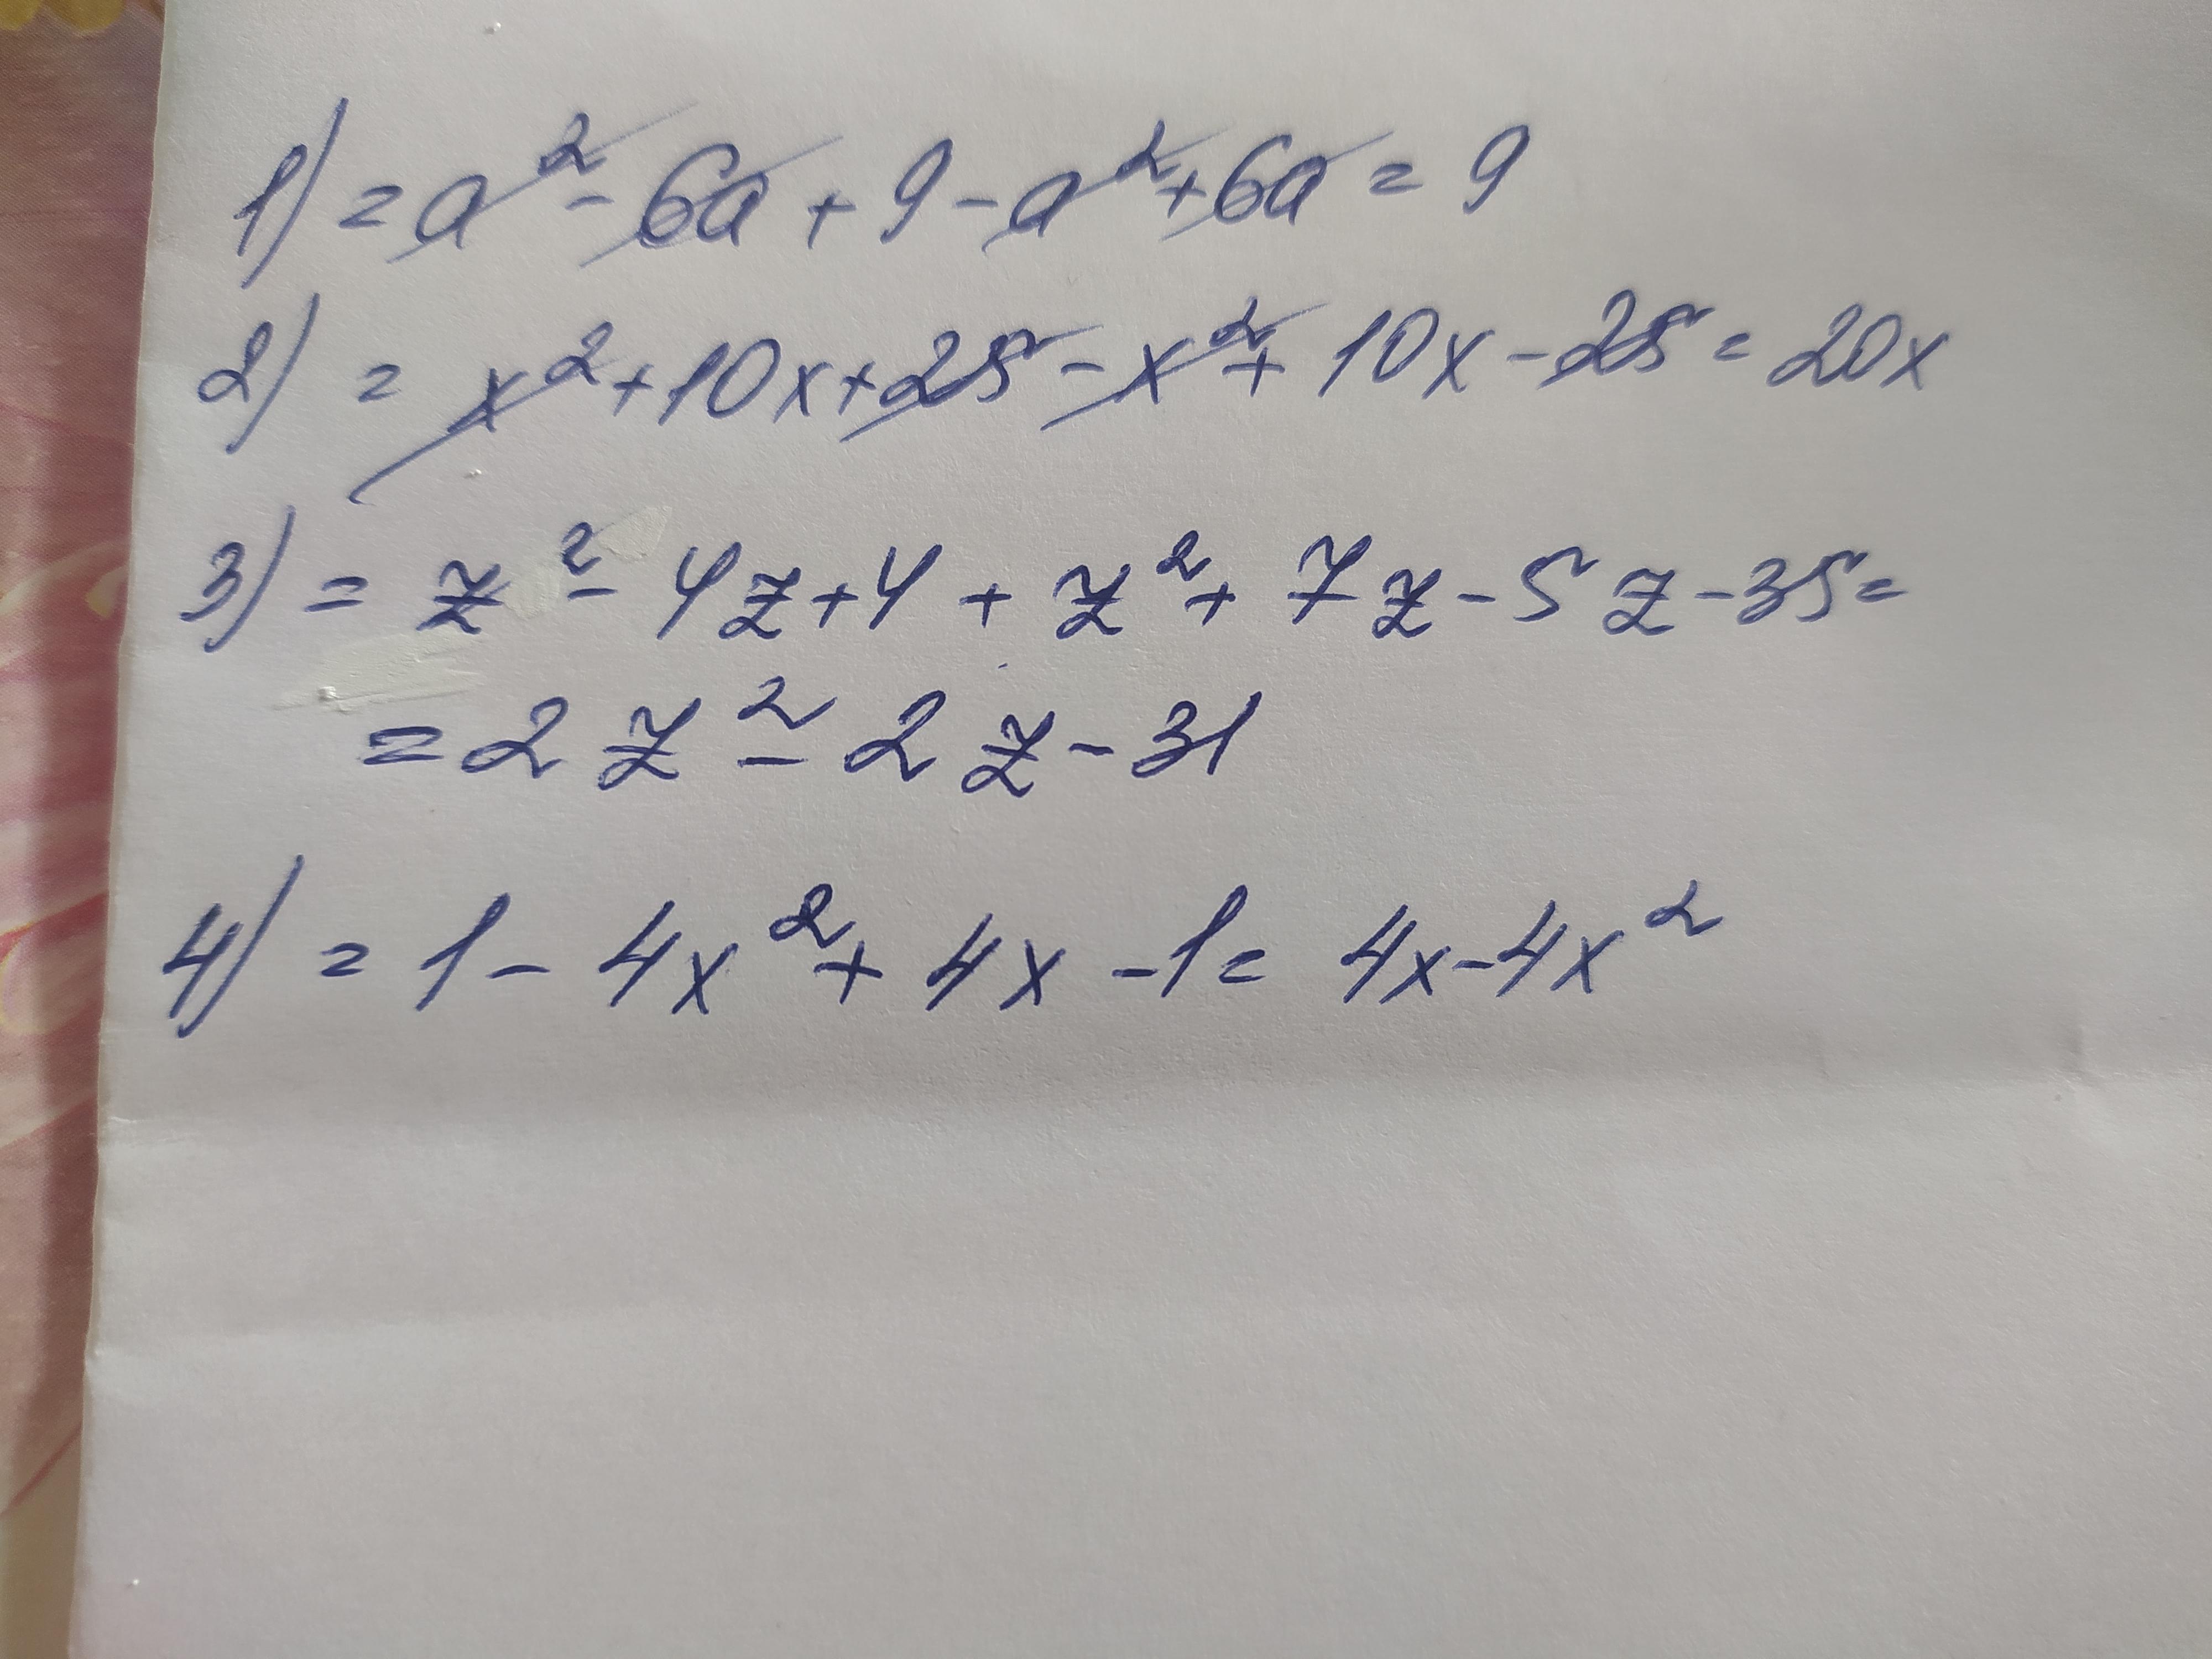 1) = a² - 6a + 9 - a² + 6a = 9
2) = x² + 10x + 25 - x² + 10x - 25 = 20x
3) = z² - 4z + 4 + z² + 7z - 5z - 35 =
= 2z² - 2z - 31
4) = 1 - 4x² + 4x - 1 = 4x - 4x²